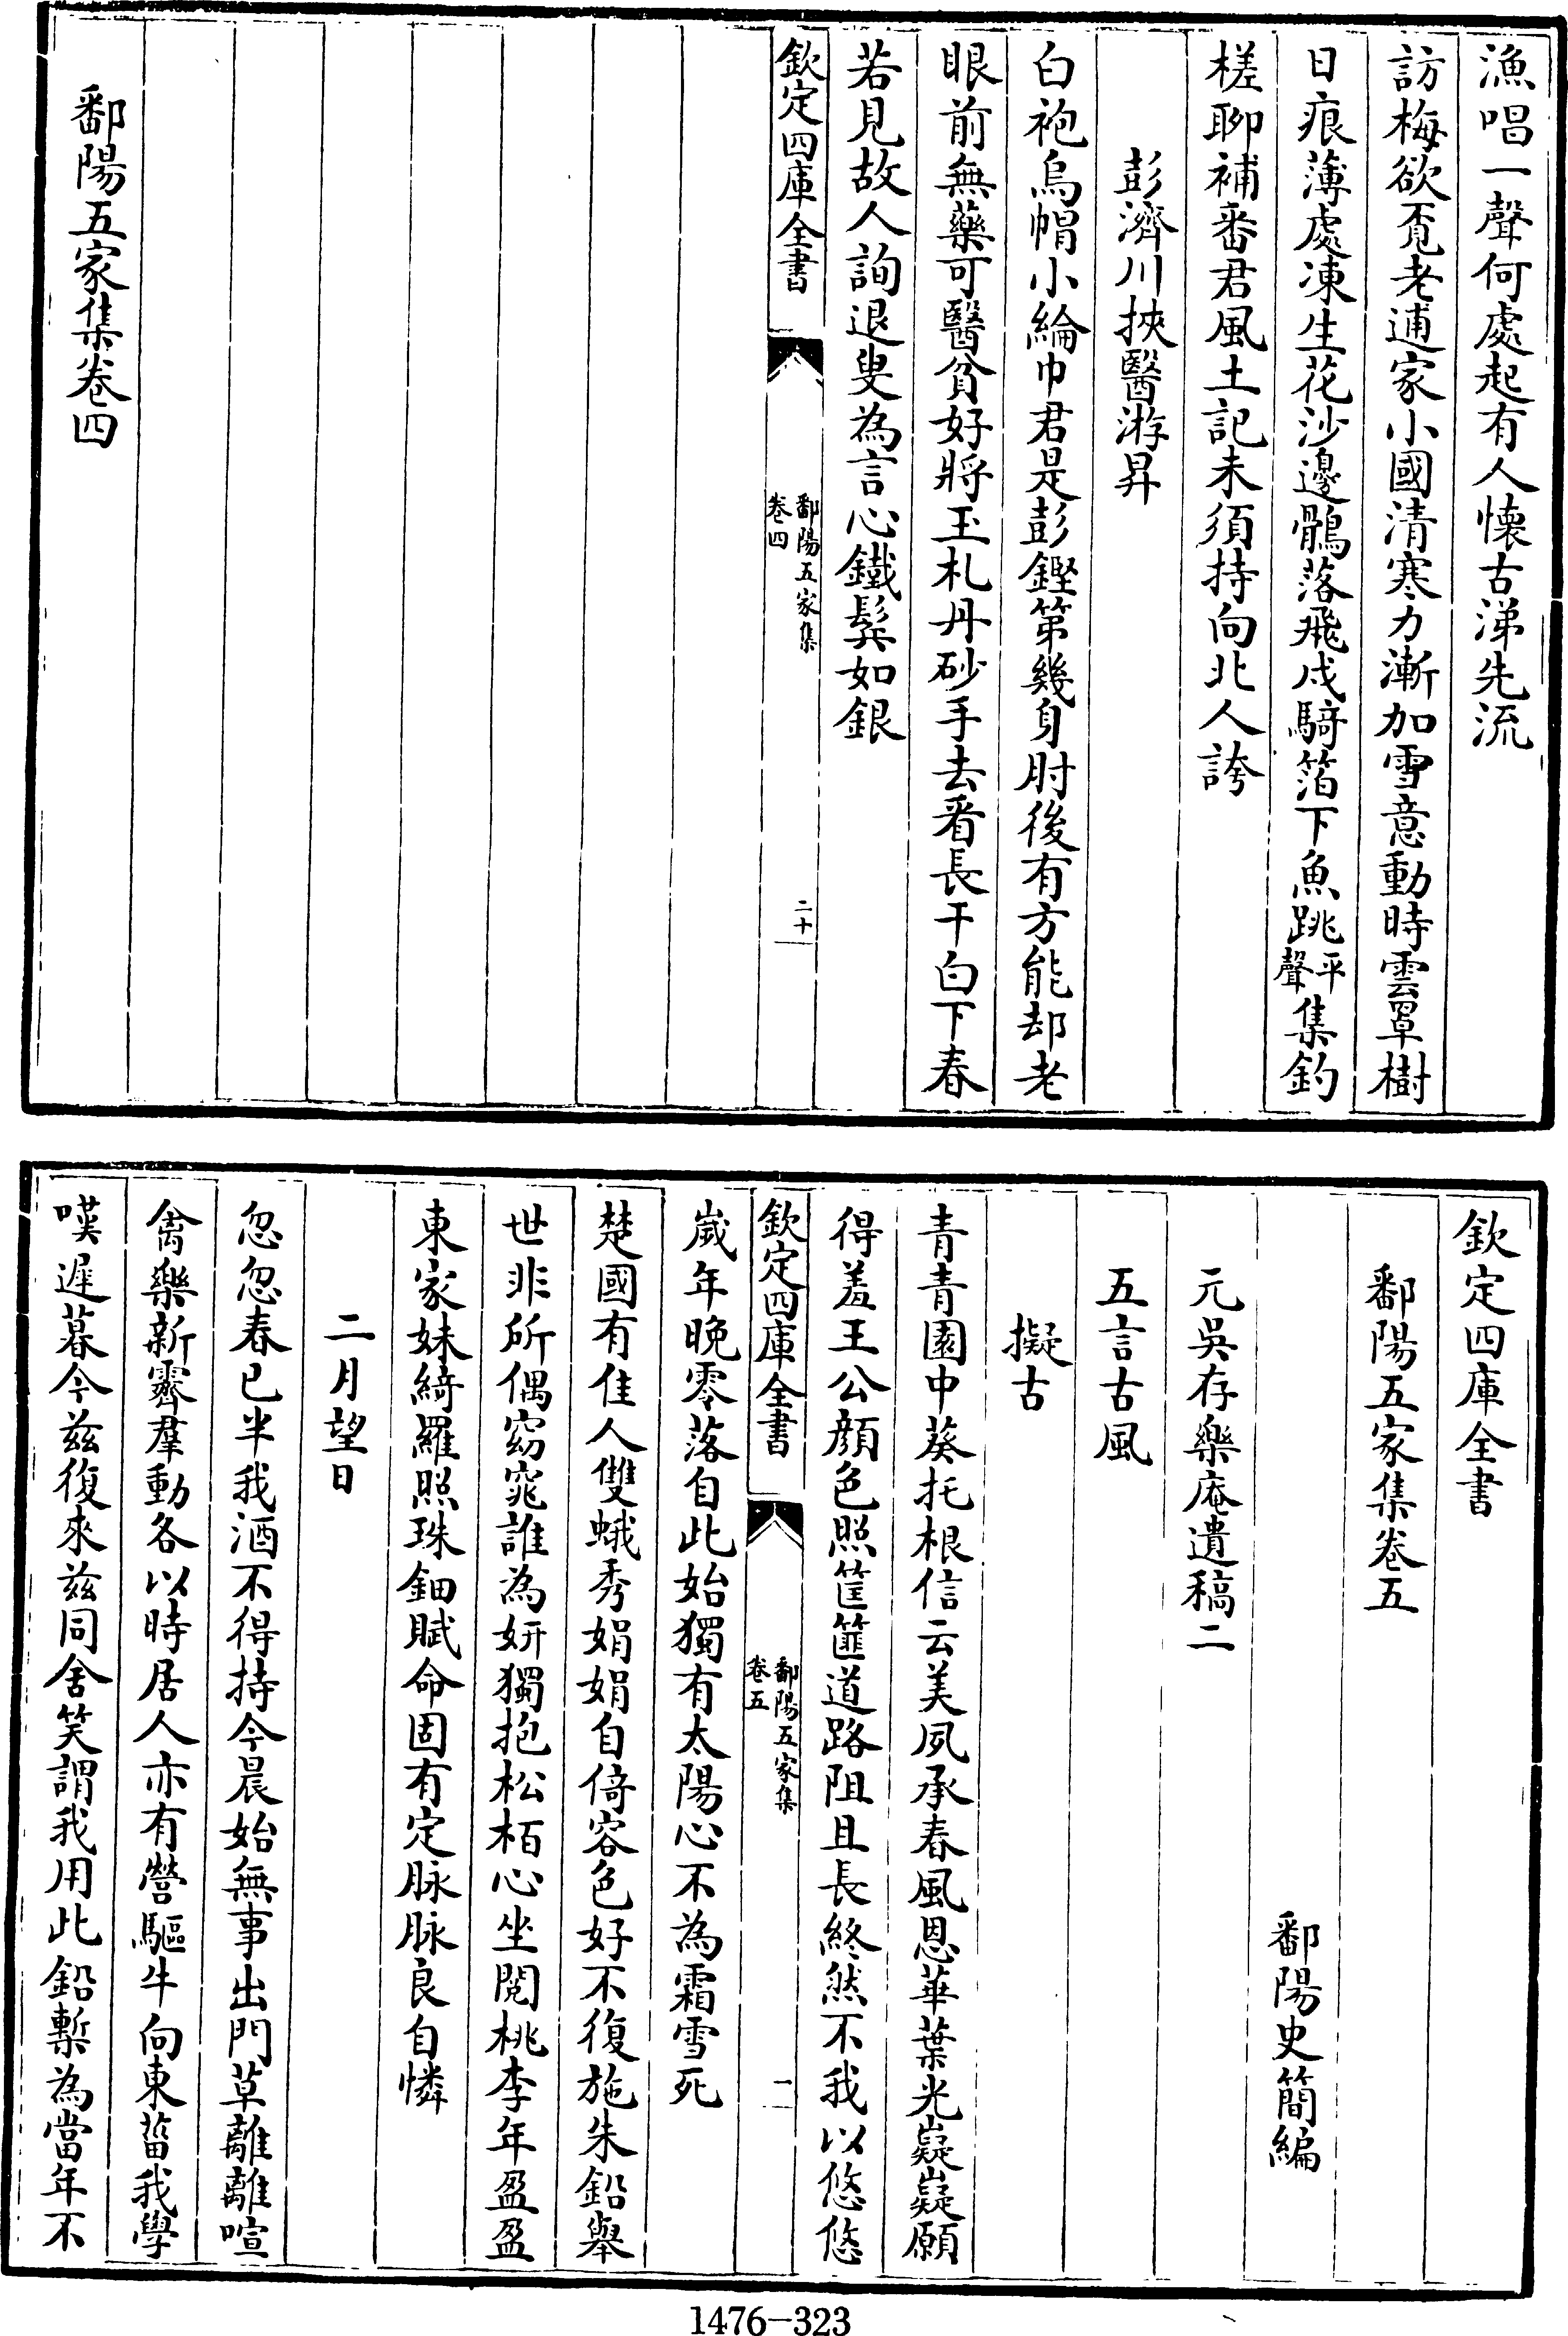 漁唱一聲何處起有人懷古涕先流
訪梅欲覔老逋家小國清寒力漸加雪意動時雲罩樹
日痕薄處凍生花沙邊鶻落飛戍騎箔下魚跳平聲集釣
槎聊補番君風土記未須持向北人誇
彭濟川挾醫游昇
白袍烏帽小綸巾君是彭鏗第幾身肘後有方能却老
眼前無藥可醫貧好將玉札丹砂手去看長干白下春
若見故人詢退叟為言心鐵鬂如銀
欽定四庫全書
鄱陽五家集
卷四
二十
鄱陽五家集卷四
欽定四庫全書
鄱陽五家集卷五
鄱陽史簡編
元吳存樂庵遺稿二
五言古風
擬古
青青園中葵托根信云美夙承春風恩華葉光嶷嶷願
得羞王公顔色照筐篚道路阻且長終然不我以悠悠
欽定四庫全書
鄱陽五家集
卷五
一
歲年晚零落自此始獨有太陽心不為霜雪死
楚國有佳人雙蛾秀娟娟自倚容色好不復施朱鉛舉
世非所偶窈窕誰為妍獨抱松栢心坐閱桃李年盈盈
東家妹綺羅照珠鈿賦命固有定脉脉良自憐
二月望日
忽忽春已半我酒不得持今晨始無事出門草離離喧
禽樂新霽羣動各以時居人亦有營驅牛向東菑我學
嘆遲暮今兹復來兹同舍笑謂我用此鉛槧為當年不
1476-323